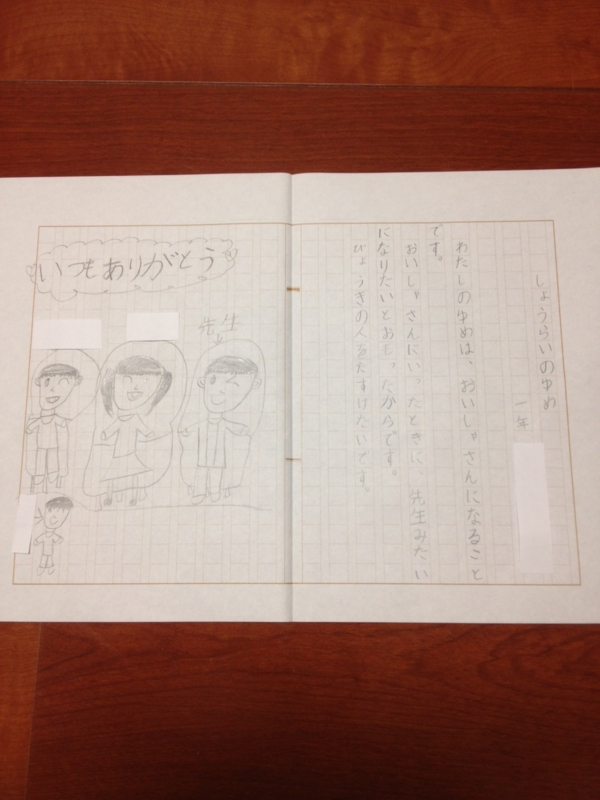 しょうらいのゆめ
一年
わたしのゆめは、おいしゃさんになること
です。
おいしゃさんにいったときに、先生みたい
になりたいとおもったからです。
びょうきの人をたすけたいです。
いつもありがとう
先生